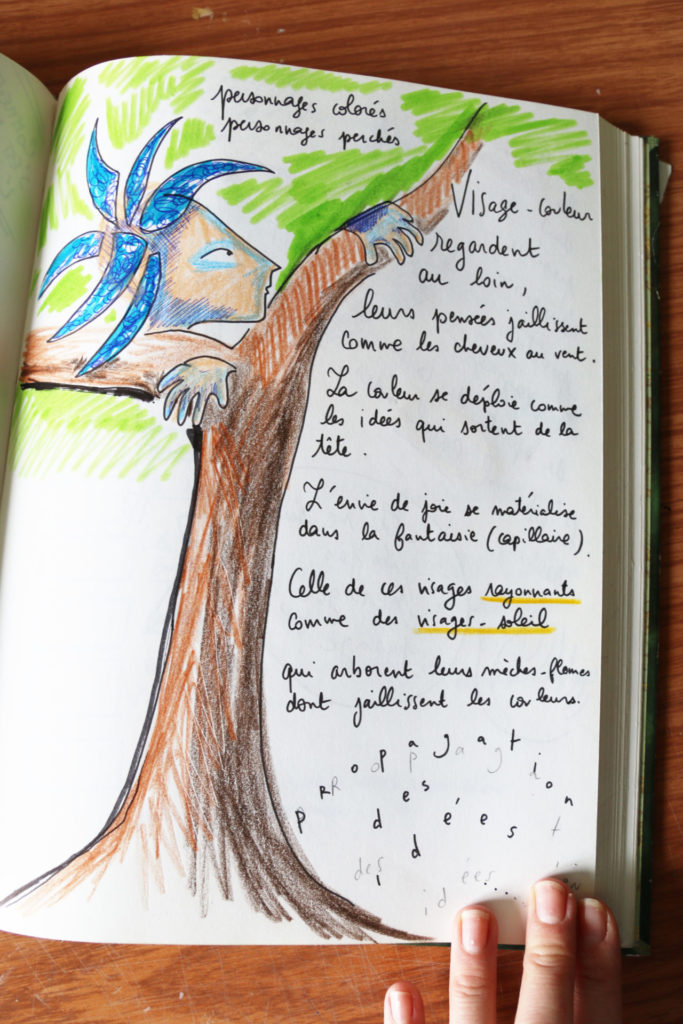 personnages colorés
personnages perchés
Visage-couleur
regardent
au loin,
leurs pensées jaillissent
comme les cheveux au vent.
La couleur se déploie comme
les idées qui sortent de la
tête.
L'envie de joie se matérialise
dans la fantaisie (capillaire).
Celle de ces visages rayonnants
comme des visages-soleil
qui arborent leurs mèches-flammes
dont jaillissent les couleurs.
PRopagation
des
idées
des idées